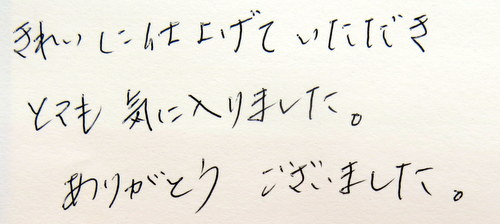 きれいに仕上げていただき
とても気に入りました。
ありがとうございました。